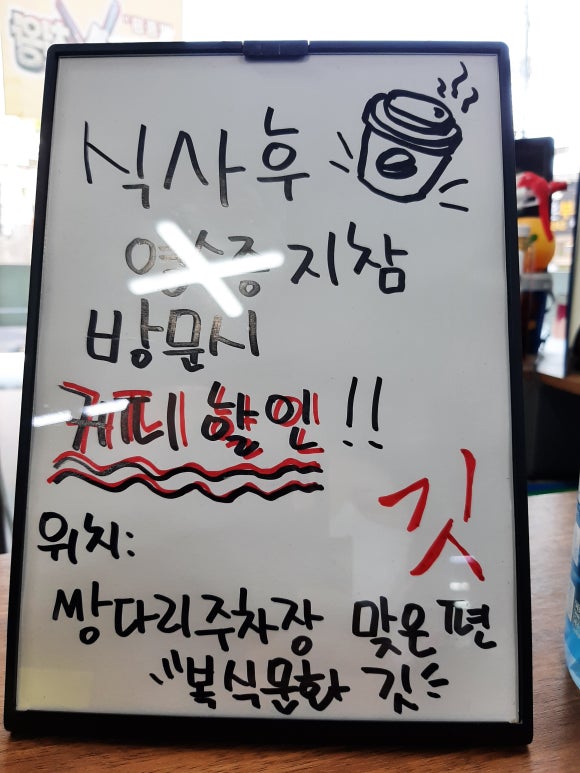 식사후
영수증 지참
방문시
커피 할인!!
깃
위치:
쌍다리주차장 맞은편
"복식문화 깃"